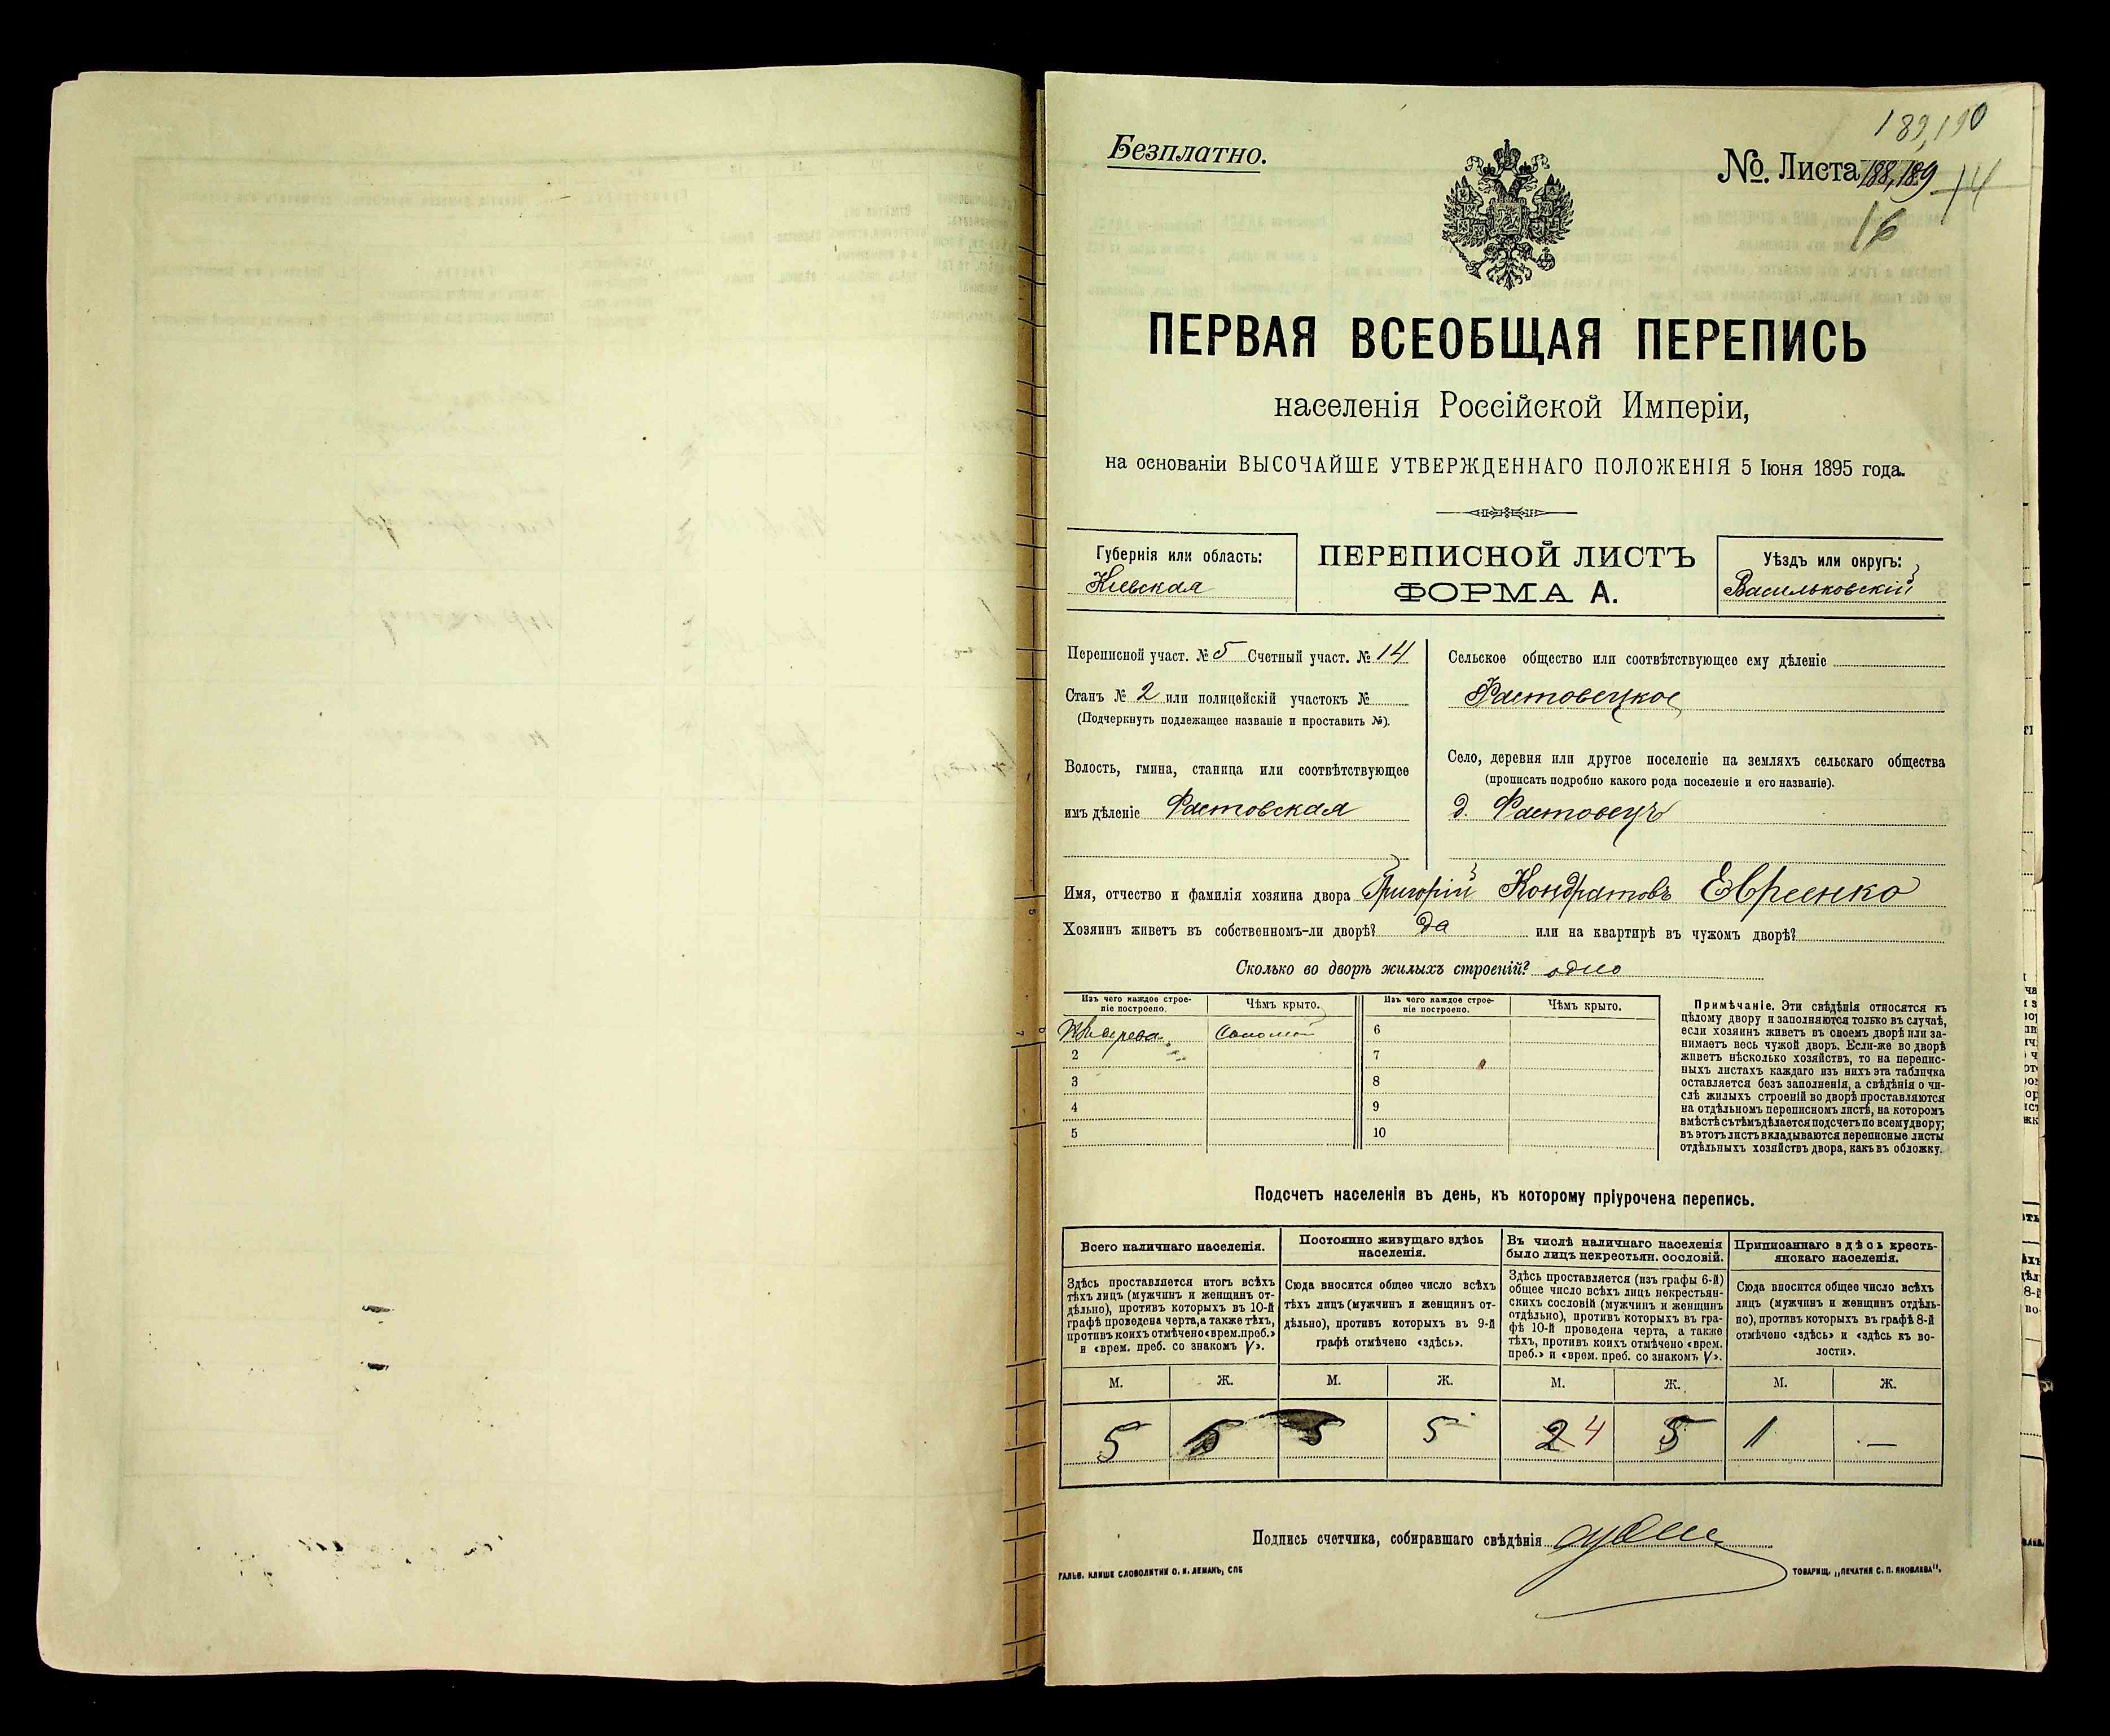 189,190
Безплатно.
№. Листа 188,189 14
16
ПЕРВАЯ ВСЕОБЩАЯ ПЕРЕПИСЬ
населенія Россійской Имперіи,
на основаніи ВЫСОЧАЙШЕ УТВЕРЖДЕННАГО ПОЛОЖЕНІЯ 5 Іюня 1895 года.
Губернія или область:
Кіевская
ПЕРЕПИСНОЙ ЛИСТЪ
ФОРМА А.
Уѣздъ или округъ:
Васильковскій
Переписной участ. № 5 Счетный участ. № 14
Станъ № 2 или полицейскій участокъ №
(Подчеркнуть подлежащее названіе и проставить №).
Волость, гмина, станица или соотвѣтствующее
имъ дѣленіе Фастовская
Сельское общество или соотвѣтствующее ему дѣленіе
Фастовецкое
Село, деревня или другое поселеніе на земляхъ сельскаго общества
(прописать подробно какого рода поселеніе и его названіе).
д. Фастовецъ
Имя, отчество и фамилія хозяина двора Григорій Кондратовъ Евреенко
Хозяинъ живетъ въ собственномъ-ли дворѣ? да или на квартирѣ въ чужомъ дворѣ?
Сколько во дворѣ жилыхъ строеній? одно
Изъ чего каждое строе-
ніе построено.
Чѣмъ крыто.
Изъ чего каждое строе-
ніе построено.
Чѣмъ крыто.
Изъ дерева Соломой
2
3
4
5
6
7
8
9
10
Примѣчаніе. Эти свѣдѣнія относятся къ
цѣлому двору и заполняются только въ случаѣ,
если хозяинъ живетъ въ своемъ дворѣ или за-
нимаетъ весь чужой дворъ. Если-же во дворѣ
живетъ нѣсколько хозяйствъ, то на перепис-
ныхъ листахъ каждаго изъ нихъ эта табличка
оставляется безъ заполненія, а свѣдѣнія о чи-
слѣ жилыхъ строеній во дворѣ проставляются
на отдѣльномъ переписномъ листѣ, на которомъ
вмѣстѣ съ тѣмъ дѣлается подсчетъ по всему двору;
въ этотъ листъ вкладываются переписные листы
отдѣльныхъ хозяйствъ двора, какъ въ обложку.
Подсчетъ населенія въ день, къ которому пріурочена перепись.
Всего наличнаго населенія.
Здѣсь проставляется итогъ всѣхъ
тѣхъ лицъ (мужчинъ и женщинъ от-
дѣльно), противъ которыхъ въ 10-й
графѣ проведена черта, а также тѣхъ,
противъ коихъ отмѣчено «врем. преб.»
и «врем. преб. со знакомъ V».
Постоянно живущаго здѣсь
населенія.
Сюда вносится общее число всѣхъ
тѣхъ лицъ (мужчинъ и женщинъ от-
дѣльно), противъ которыхъ въ 9-й
графѣ отмѣчено «здѣсь».
Въ числѣ наличнаго населенія
было лицъ некрестьян. сословій.
Здѣсь проставляется (изъ графы 6-й)
общее число всѣхъ лицъ некрестьян-
скихъ сословій (мужчинъ и женщинъ
отдѣльно), противъ которыхъ въ гра-
фѣ 10-й проведена черта, а также
тѣхъ, противъ коихъ отмѣчено «врем.
преб.» и «врем. преб. со знакомъ V».
Приписаннаго здѣсь кресть-
янскаго населенія.
Сюда вносится общее число всѣхъ
лицъ (мужчинъ и женщинъ отдѣль-
но), противъ которыхъ въ графѣ 8-й
отмѣчено «здѣсь» и «здѣсь къ во-
лости».
М. Ж. М. Ж. М. Ж. М. Ж.
5 5 5 5 2 4 5 1 —
Подпись счетчика, собиравшаго свѣдѣнія
ГАЛЬВ. КЛИШЕ СЛОВОЛИТНИ О. И. ЛЕМАНЪ, СПБ
ТОВАРИЩ. „ПЕЧАТНЯ С. П. ЯКОВЛЕВА".